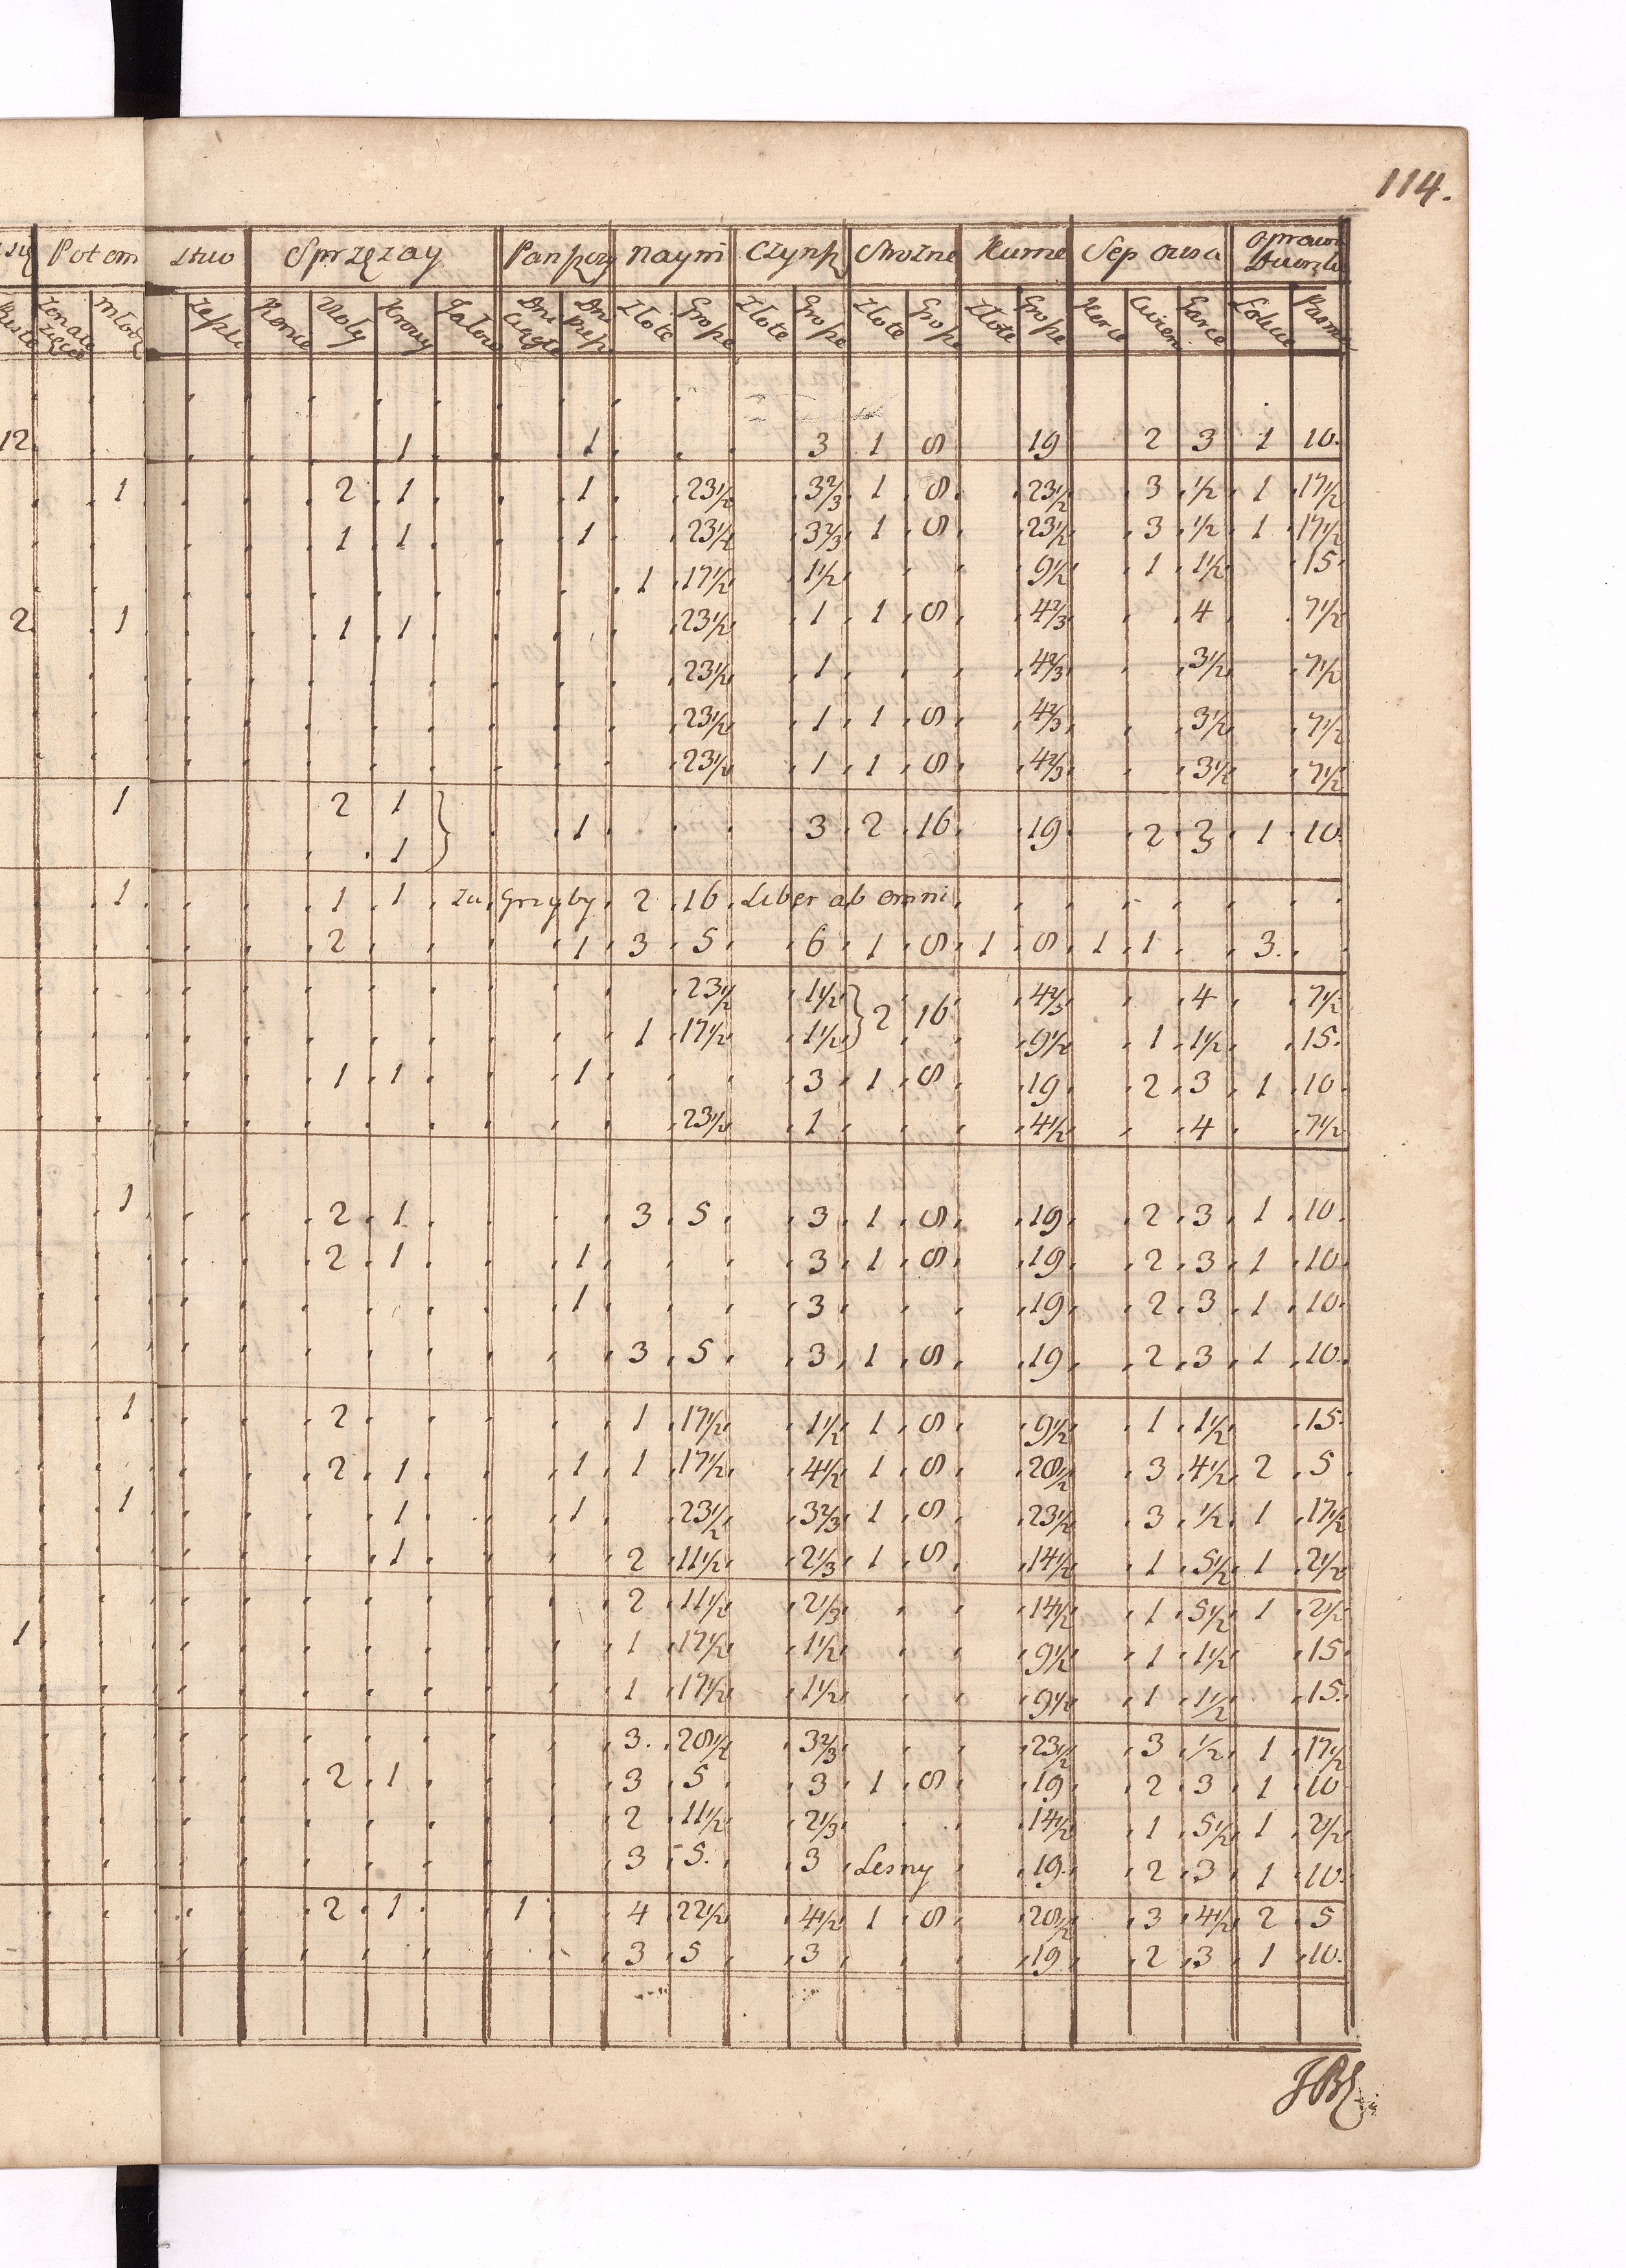 114.
Potom stwo Sprzężay Pańszcz Naym Czynsz Stróżne Kurne Sep owsa Opraw
Konie Woły Krowy Jałow Dni ciągłe Dni piesz Złote Grosze Złote Grosze Złote Grosze Złote Grosze Korce Cwierci Garce Łokcie Pasma
12 1 1 3 1 8 19 2 3 1 10.
1 2 1 1 23½ 3⅔ 1 8 23½ 3 ½ 1 17½
1 1 1 23½ 3⅔ 1 8 23½ 3 ½ 1 17½
1 17½ 1½ 9½ 1 1½ 15
2 1 1 1 23½ 1 1 8 4⅔ 4 7½
23½ 1 4⅔ 3½ 7½
23½ 1 1 8 4⅔ 3½ 7½
23½ 1 1 8 4⅔ 3½ 7½
1 2 1
1 3 2 16 19 2 3 1 10
1
1 1 1 za Grzyby 2 16 Liber ab omni
2 1 3 5 6 1 8 1 8 1 1 3.
23½ 1½ 4⅔ 4 7½
2 16
1 17½ 1½ 9½ 1 1½ 15.
1 1 1 3 1 8 19 2 3 1 10
23½ 1 4½ 4 7½
1 2 1 3 5 3 1 8 19 2 3 1 10
2 1 1 3 1 8 19 2 3 1 10
1 3 19 2 3 1 10
3 5 3 1 8 19 2 3 1 10
1 2 1 17½ 1½ 1 8 9½ 1 1½ 15
2 1 1 1 17½ 4½ 1 8 28½ 3 4½ 2 5
1 1 1 23½ 3⅔ 1 8 23½ 3 ½ 1 17½
1 2 11½ 2⅓ 1 8 14½ 1 5½ 1 2½
2 11½ 2⅓ 14½ 1 5½ 1 2½
1 1 17½ 1½ 9½ 1 1½ 15
1 17½ 1½ 9½ 1 1½ 15.
3. 28½ 3⅔ 23½ 3 ½ 1 17½
2 1 3 5 3 1 8 19 2 3 1 10
2 11½ 2⅓ 14½ 1 5½ 1 2½
3 5. 3 Lesny 19. 2 3 1 10
2 1 1 4 22½ 4½ 1 8 28½ 3 4½ 2 5
3 5 3 19 2 3 1 10.